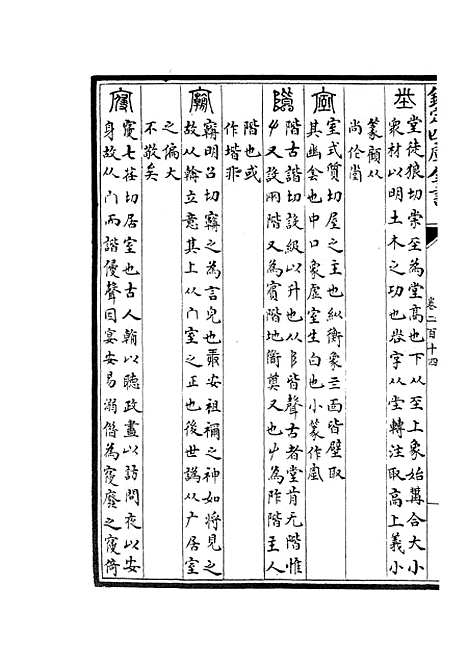 欽定四庫全書
卷二百十四
堂徒狼切崇至為堂高也下从至上象始冓合大小
衆材以明土木之功也㫺字从堂轉注取高上義小
篆頋从
尚佗尚
室式質切屋之主也縱衡象三面皆壁取
其幽㑹也中口象虚室生白也小篆作
階古諧切設級以升也从𨸏皆聲古者堂肯无階惟
又設兩階又為賓階地衜奠又也屮為阼階主人
階也或
作堦非
廟明召切廟之為言皃也嚴安祖禰之神如將見之
故从倝立意其上从宀室之正也後世譌从广居室
之偏大
不敬矣
寢七荏切居室也古人朝以聽政晝以訪問夜以安
身故从宀而諧㑴聲曰宴安易溺僭為寢廢之寢倚